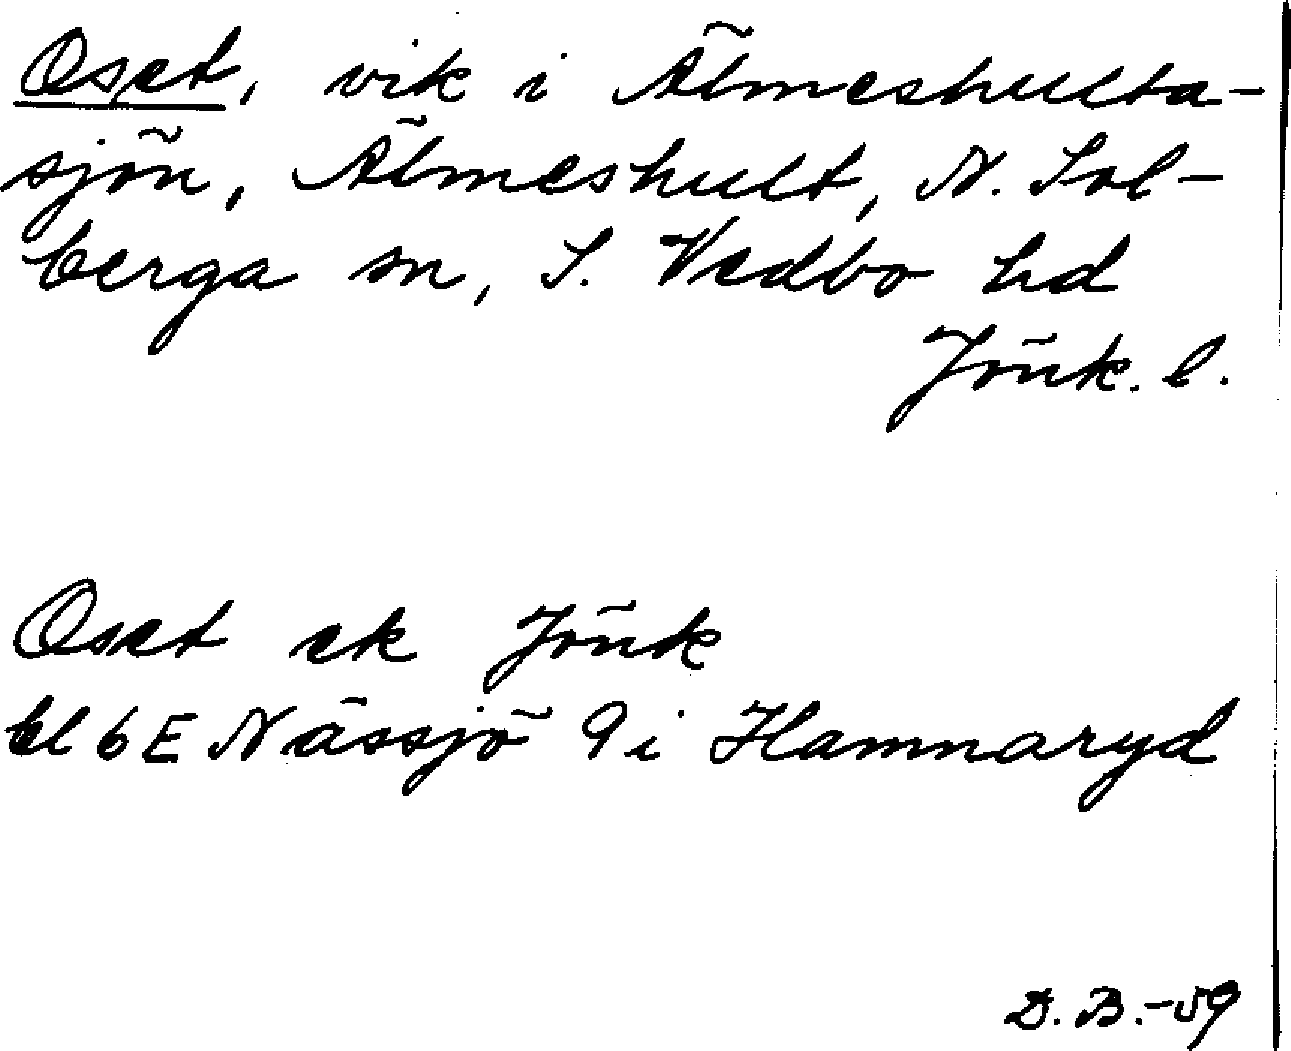 Oset, vik i Älmeshulta-
sjön, Älmeshult, N. Sol-
berga sn, S. Vedbo hd
Jönk. l.
Oset ek Jönk
bl 6E Nässjö 9i Hamnaryd
D. B. -59